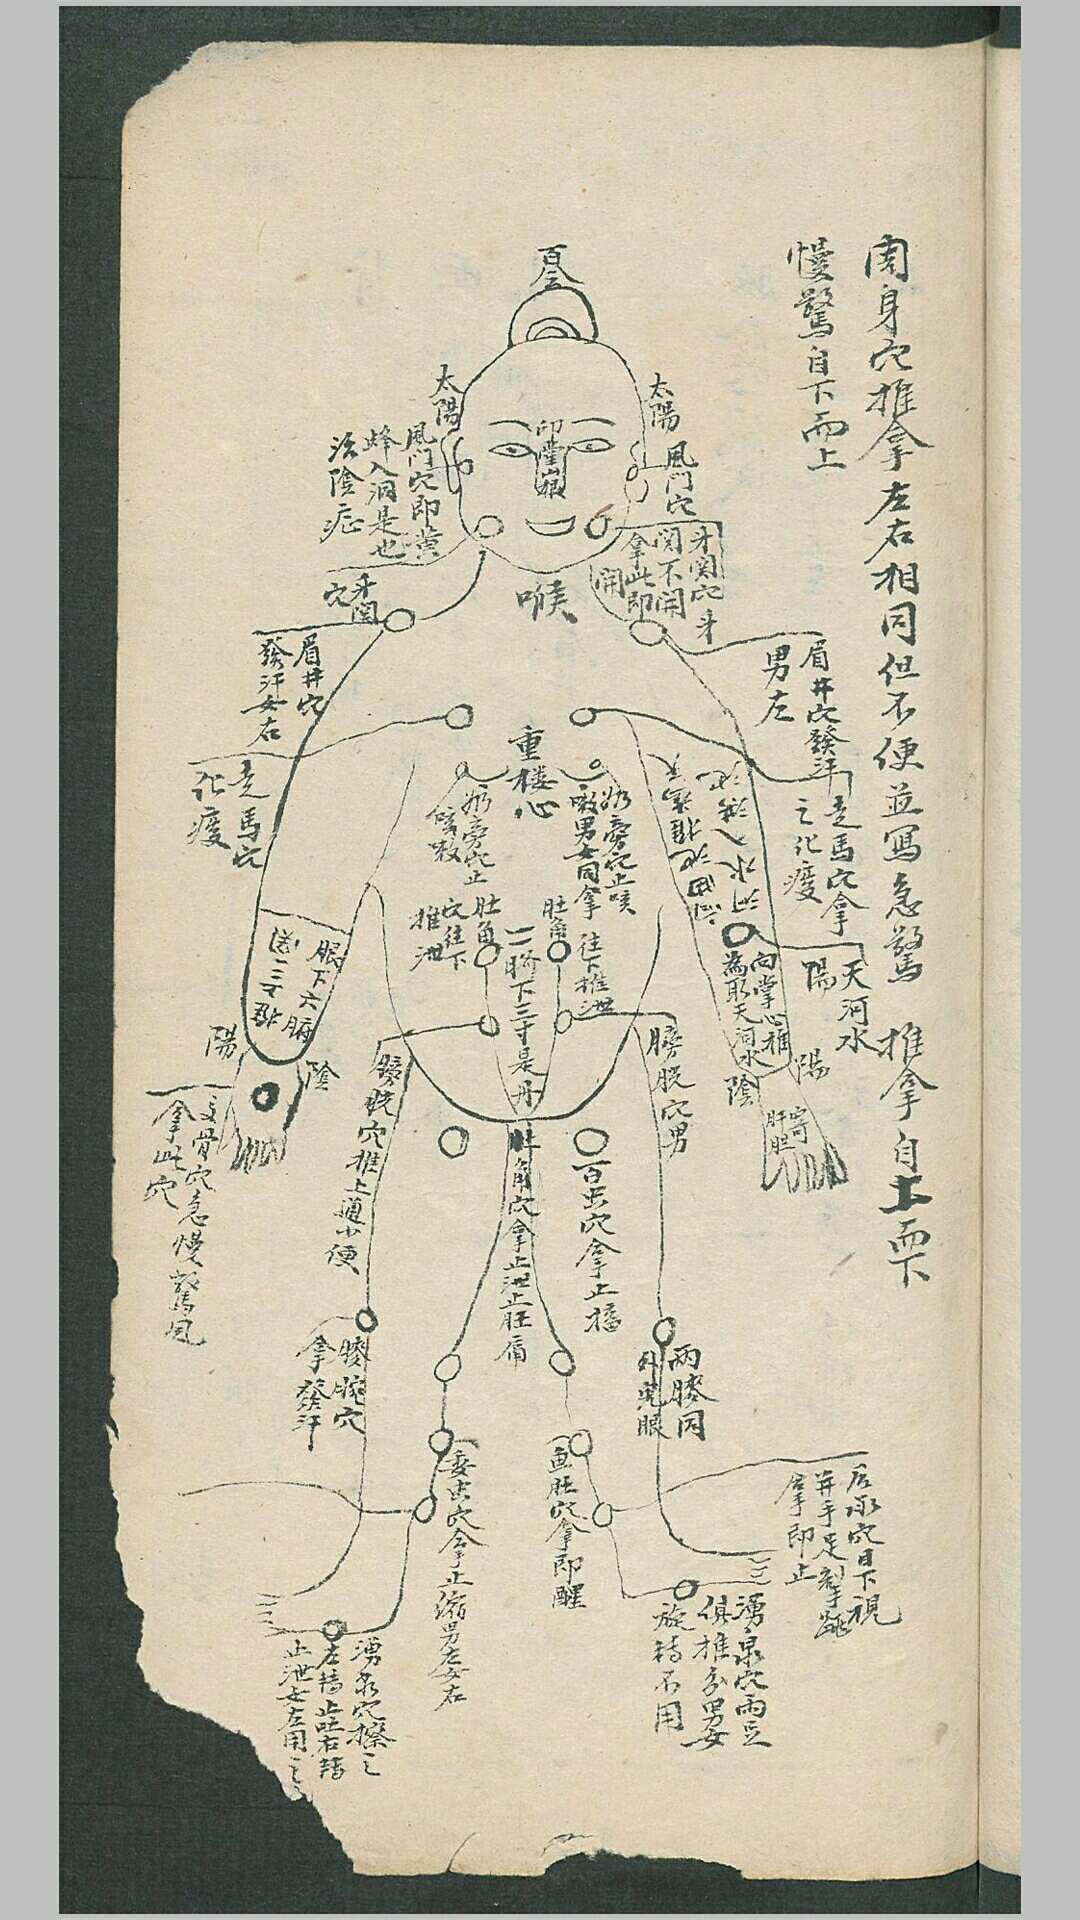 周身穴推拿左右相同但不便並寫急驚 推拿自上而下
慢驚自下而上
百会
太陽
太陽
風門穴
風門穴即黃
蜂入洞是也
法陰症
印堂
牙関穴 牙
関不開
拿此即
開
牙関
穴
喉
眉井穴發汗
男左
眉井穴
發汗女右
走馬穴拿
之化痰
走馬穴
化痰
重楼心
奶旁穴止咳
嗽男女同拿
奶旁穴止
咳嗽
肚角
往下推泄
肚角
穴往下
推泄
一臍下三寸是丹
天河水
向掌心推
為取天河水
陽
陽
陰
陽
陰
膀胱穴男
膀胱穴推上通小便
百虫穴拿止搐
肚角穴拿止泄止肚痛
拿此穴
兩膝同
外鬼眼
膝腕穴
拿發汗
魚肚穴拿即醒
委中穴拿止縮男左女右
拿即止
湧泉穴兩足
俱推分男女
旋轉不用
湧泉穴擦之
左轉止吐右轉
止泄女左用之